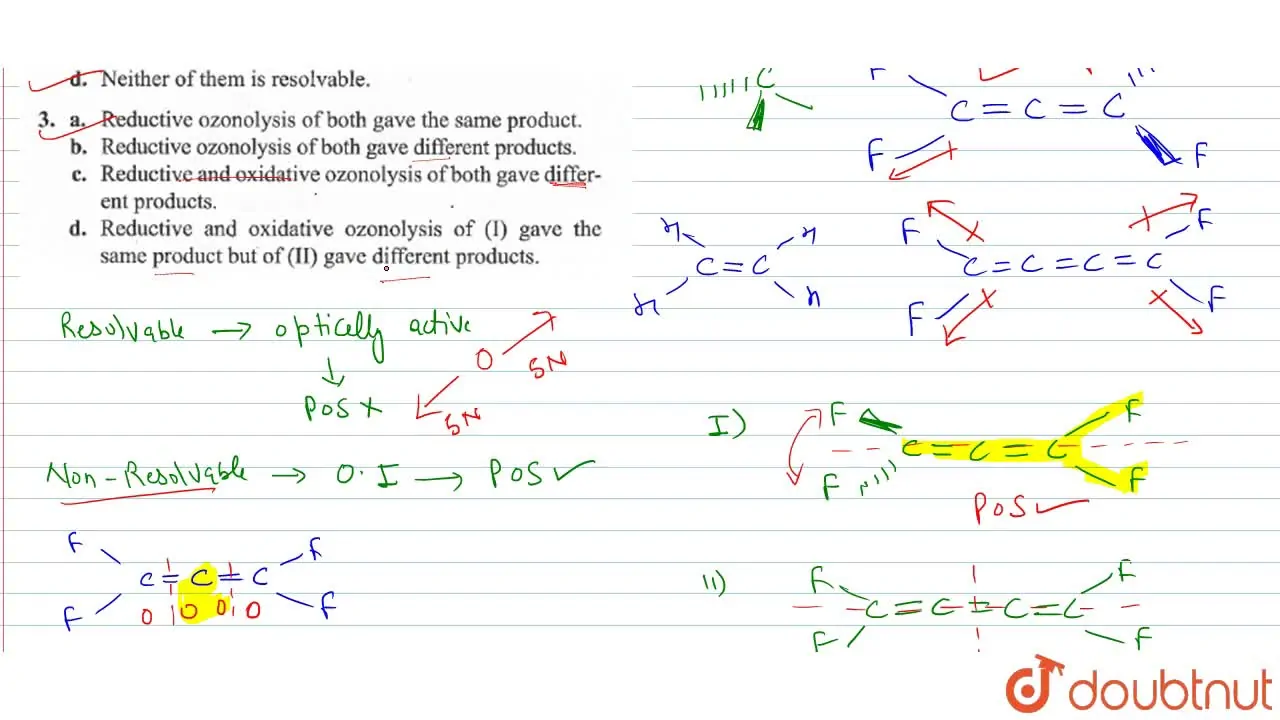 d. Neither of them is resolvable.
3. a. Reductive ozonolysis of both gave the same product.
b. Reductive ozonolysis of both gave different products.
c. Reductive and oxidative ozonolysis of both gave differ-
ent products.
d. Reductive and oxidative ozonolysis of (I) gave the
same product but of (II) gave different products.
Resolvable → optically active
↓
POS ×
O
SN
SN
Non-Resolvable → O.I → POS ✓
F F
C = C = C
F O O O O F
C
F
C = C = C
F F
H H
C = C
H H
F F
C = C = C = C
F F
I)
F F
C = C = C
F F
POS ✓
II)
F F
C = C = C = C
F F
doubtnut